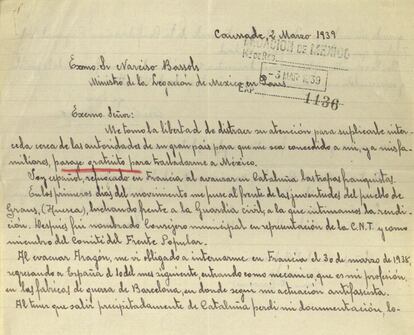 Caussade, 2 Marzo 1939
LEGACION DE MEXICO
-3 MAR 1939
1136
Exmo. Sr Narciso Bassols
Ministro de la Legación de Mexico en Paris
Excmo Señor:
Me tomo la libertad de distraer su atención para suplicarle inter
ceda, cerca de las autoridades de su gran pais para que me sea concedido a mi, y a mis fa-
miliares, pasaje gratuito para trasladarme a México.
Soy español, refugiado en Francia al avanzar en Cataluña las tropas franquistas.
En los primeros dias del movimiento me puse al frente de las juventudes del pueblo de
Graus, (Huesca), luchando frente a la Guardia civil, a la que intimamos la rendi-
ción. Después fui nombrado Consejero municipal en representación de la C.N.T. y como
miembro del Comité del Frente Popular.
Al evacuar Aragón, me vi obligado a internarme en Francia el 30 de marzo de 1938,
regresando a España el 10 del mes siguiente, entrando como mecánico que es mi profesión,
en las fábricas de guerra de Barcelona, en donde seguí mi actuación antifascista.
Al tener que salir precipitadamente de Cataluña perdí mi documentación, lo-